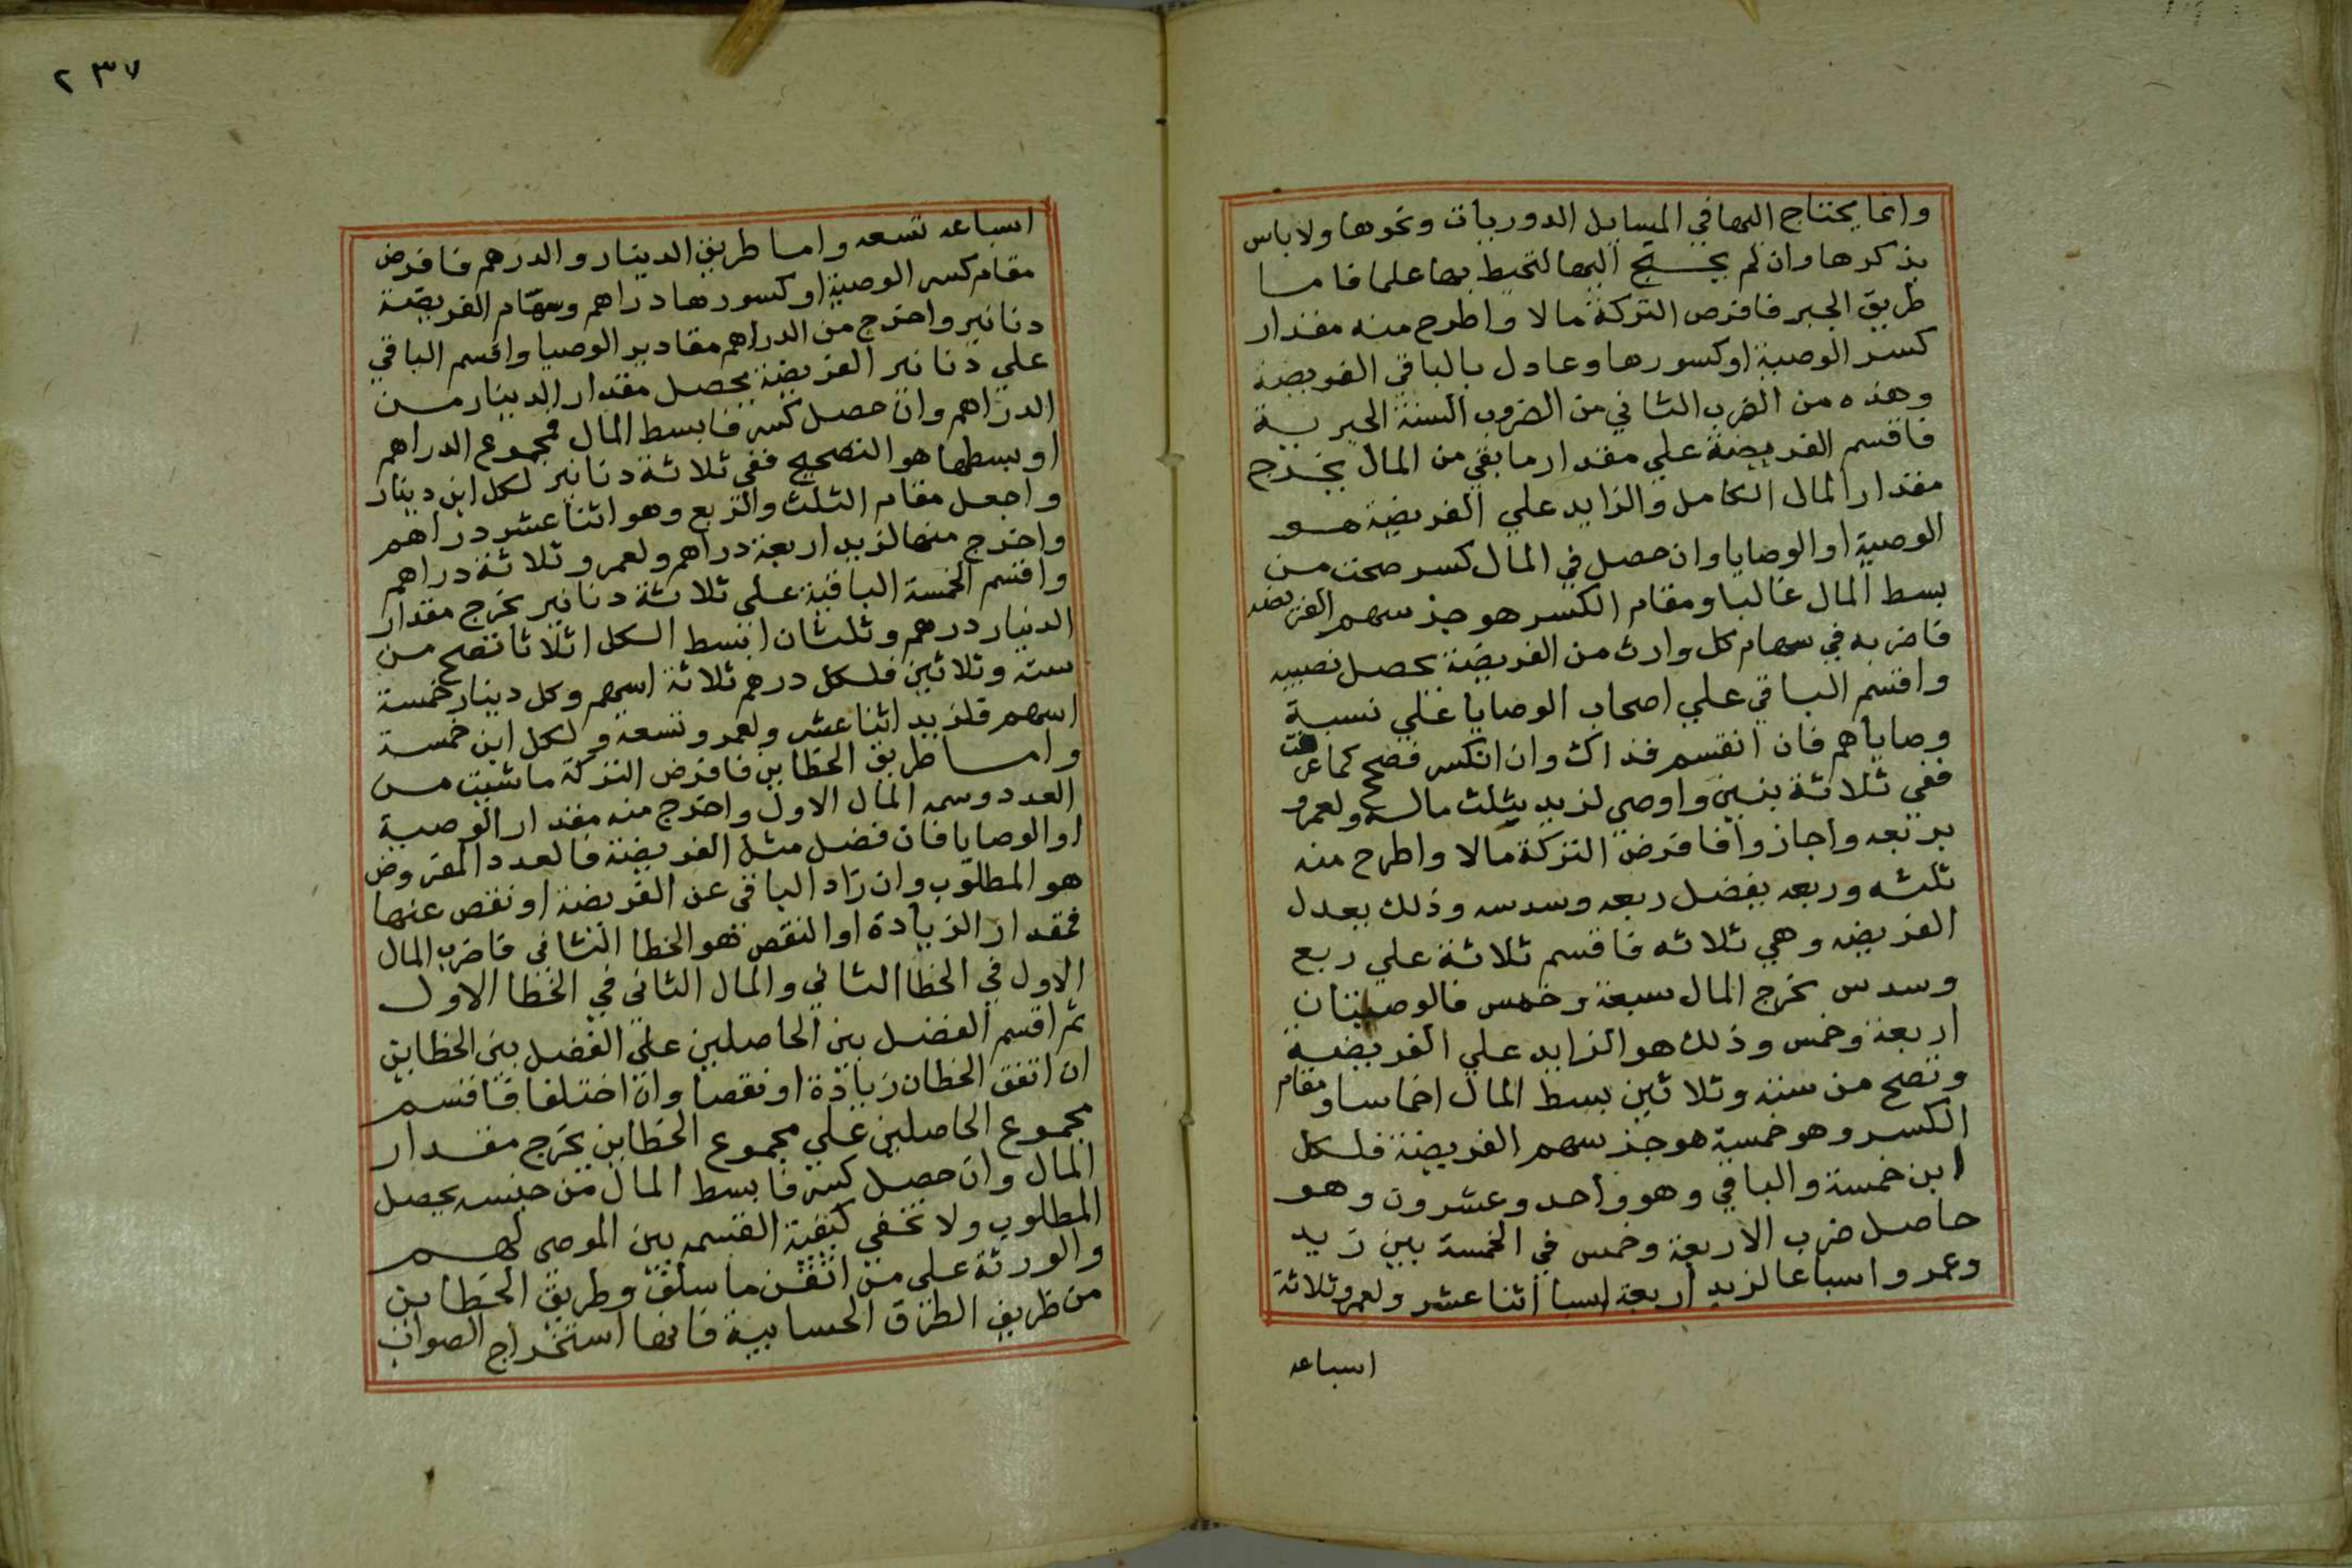 وانما يحتاج اليها في المسايل الدوريات ونحوها ولا باس
بذكرها وان لم يحتج اليها لتحيط بها علما فاما
طريق الجبر فافرض التركة مالا واطرح منه مقدار
كسر الوصية او كسورها وعادل بالباقي الفريضة
وهذه من الضرب الثاني من الضروب الستة الجبرية
فاقسم الفريضة علي مقدار ما بقي من المال يخرج
مقدار المال الكامل والزايد علي الفريضة هو
الوصية او الوصايا وان حصل في المال كسر صحت من
بسط المال غالبا ومقام الكسر هو جز سهم الفريضه
فاضربه في سهام كل وارث من الفريضة يحصل نصيبه
واقسم الباقي علي اصحاب الوصايا علي نسبة
وصاياهم فان انقسم فذاك وان انكسر فصحح كما عرفت
ففي ثلاثة بنين واوصي لزيد بثلث ماله ولعمرو
بربعه واجازوا فافرض التركة مالا واطرح منه
ثلثه وربعه يفضل ربعه وسدسه وذلك يعدل
الفريضه وهي ثلاثه فاقسم ثلاثة علي ربع
وسدس يخرج المال سبعة وخمس فالوصيتان
اربعة وخمس وذلك هو الزايد علي الفريضة
وتصح من ستة وثلاثين بسط المال اخماسا ومقام
الكسر وهو خمسة هو جز سهم الفريضة فلكل
ابن خمسة والباقي وهو واحد وعشرون وهو
حاصل ضرب الاربعة وخمس في الخمسة بين زيد
وعمرو اسباعا لزيد اربعة اسبا اثنا عشر ولعمرو ثلاثة
اسباعه
٢٣٧
اسباعه تسعه واما طريق الدينار والدرهم فافرض
مقام كسر الوصية او كسورها دراهم وسهام الفريضة
دنانير واخرج من الدراهم مقادير الوصيا واقسم الباقي
علي دنانير الفريضة يحصل مقدار الدينار من
الدراهم وان حصل كسر فابسط المال فمجموع الدراهم
او بسطها هو التصحيح ففي ثلاثة دنانير لكل ابن دينار
واجعل مقام الثلث والربع وهو اثنا عشر دراهم
واخرج منها لزيد اربعة دراهم ولعمرو ثلاثة دراهم
واقسم الخمسة الباقية علي ثلاثة دنانير يخرج مقدار
الدينار درهم وثلثان ابسط الكل اثلاثا تصح من
ستة وثلاثين فلكل درهم ثلاثة اسهم وكل دينار خمسة
اسهم فلزيد اثنا عشر ولعمرو تسعة ولكل ابن خمسة
واما طريق الخطاين فافرض التركة ما شيت من
العدد وسمه المال الاول واخرج منه مقدار الوصية
او الوصايا فان فضل مثل الفريضة فالعدد المفروض
هو المطلوب وان زاد الباقي عن الفريضة او نقص عنها
فمقدار الزيادة او النقص فهو الخطا الثاني فاضرب المال
الاول في الخطا الثاني والمال الثاني في الخطا الاول
ثم اقسم الفضل بين الحاصلين علي الفضل بين الخطاين
ان اتفق الخطان زيادة او نقصا وان اختلفا فاقسم
مجموع الحاصلين علي مجموع الخطاين يخرج مقدار
المال وان حصل كسر فابسط المال من جنسه يحصل
المطلوب ولا تخفي كيفية القسمه بين الموصي لهم
والورثة علي من اتقن ما سلف وطريق الخطاين
من طريف الطرق الحسابية فانها استخراج الصواب